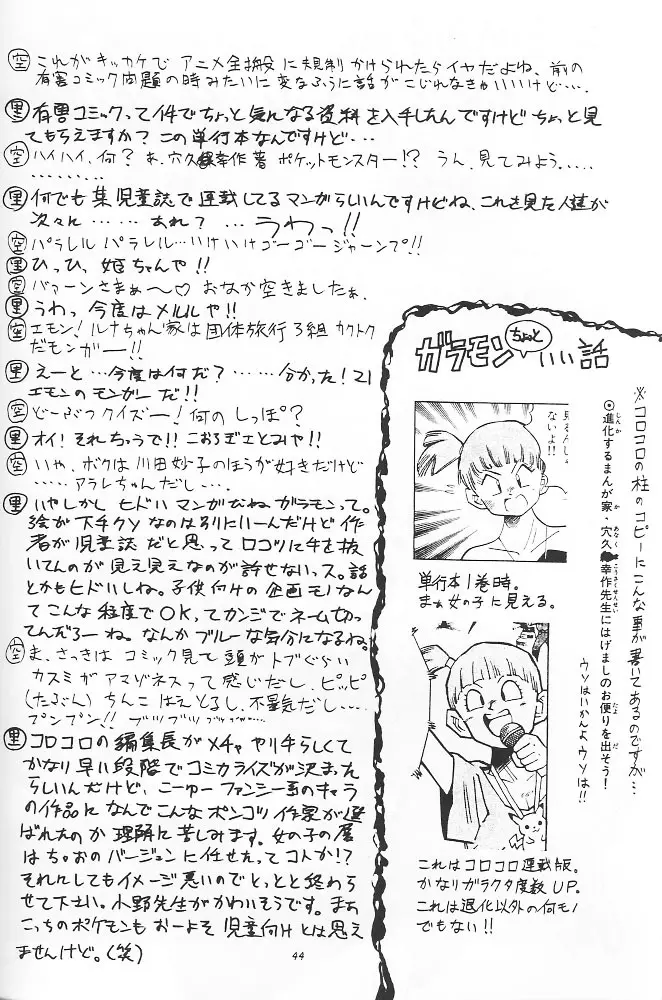 空 これがキッカケで アニメ全搬 に規制 かけられたらイヤだよね、前の
有害コミック問題の時みたいに変なふうに話が こじれなきゃいいけど….
里 有害コミックって件でちょっと気になる資料 を入手したんですけど ちょっと見
てもらえますか? この単行本なんですけど…
空 ハイハイ、何? あ、穴久保幸作著 ポケットモンスター!? うん、見てみよう……
………
里 何でも 某児童誌で連載してるマンガらしいんですけどね、これを見た人達が
次々に… … あれ? … うわっ!!
空 パラレル パラレル…いけいけゴーゴージャーンプ!!
里 ひっひ、姫ちゃんや!!
空 バァーンさまぁ〜♡ おなか空きましたぁ、
里 うわっ 今度は メルルや!!
空 エモン! ルナちゃん家は団体旅行 3組 カクトク
だモンガー!!
里 えーと…今度は何だ? …… 分かった! 21
エモンの モンガー だ!!
空 どーぶつクイズー! 何の しっぽ?
里 オイ! それちゃうで!! こおろぎさとみや!!
空 いや、ボクは川田妙子のほうが好きだけど
…… アラレちゃんだし….
里 いやしかし ヒドいマンガだねガラモンって。
絵が下手クソなのは別にいーんだけど作
者が児童誌だと思ってロコツに手を抜
いてんのが見え見えなのが許せないっス。話
とかもヒドいしね。子供向けの企画モノなん
てこんな程度でOK、てカンジでネーム切っ
てんだろーね。なんかブルーな気分になるね。
空 ま、さっきは コミック見て頭がトブぐらい
カスミがアマゾネスって感じだし、ピッピ
(たるぶん) ちんこ はえとるし、不景気だし….
プンプン!! ブツブツブツ……
里 コロコロの編集長がメチャやり手らしくて
かなり早い段階でコミカライズが決まった
らしいんだけど、こーゆーファンシー系のキャラ
の作品になんでこんなポンコツ作家が選
ばれたのか理解に苦しみます。女の子の層
はちゃおのバージョンに任せたってコトか!?
それにしてもイメージ悪いのでとっとと終わら
せて下さい。小野先生がかわいそうです。まぁ
こっちのポケモンもおーよそ児童向けとは思え
ませんけど。(笑)
ガラモン ちょっと いい話
※コロコロの柱のコピーにこんな事が書いてあるのですが…
◎進化するまんが家・穴久保幸作先生にはげましのお便りを出そう!
ウソはいかんよウソは!!
見るんじゃ
ないよ!!
単行本1巻時。
まぁ女の子に見える。
これはコロコロ連載版。
かなりガラクタ度数UP。
これは退化以外の何モノ
でもない!!
44